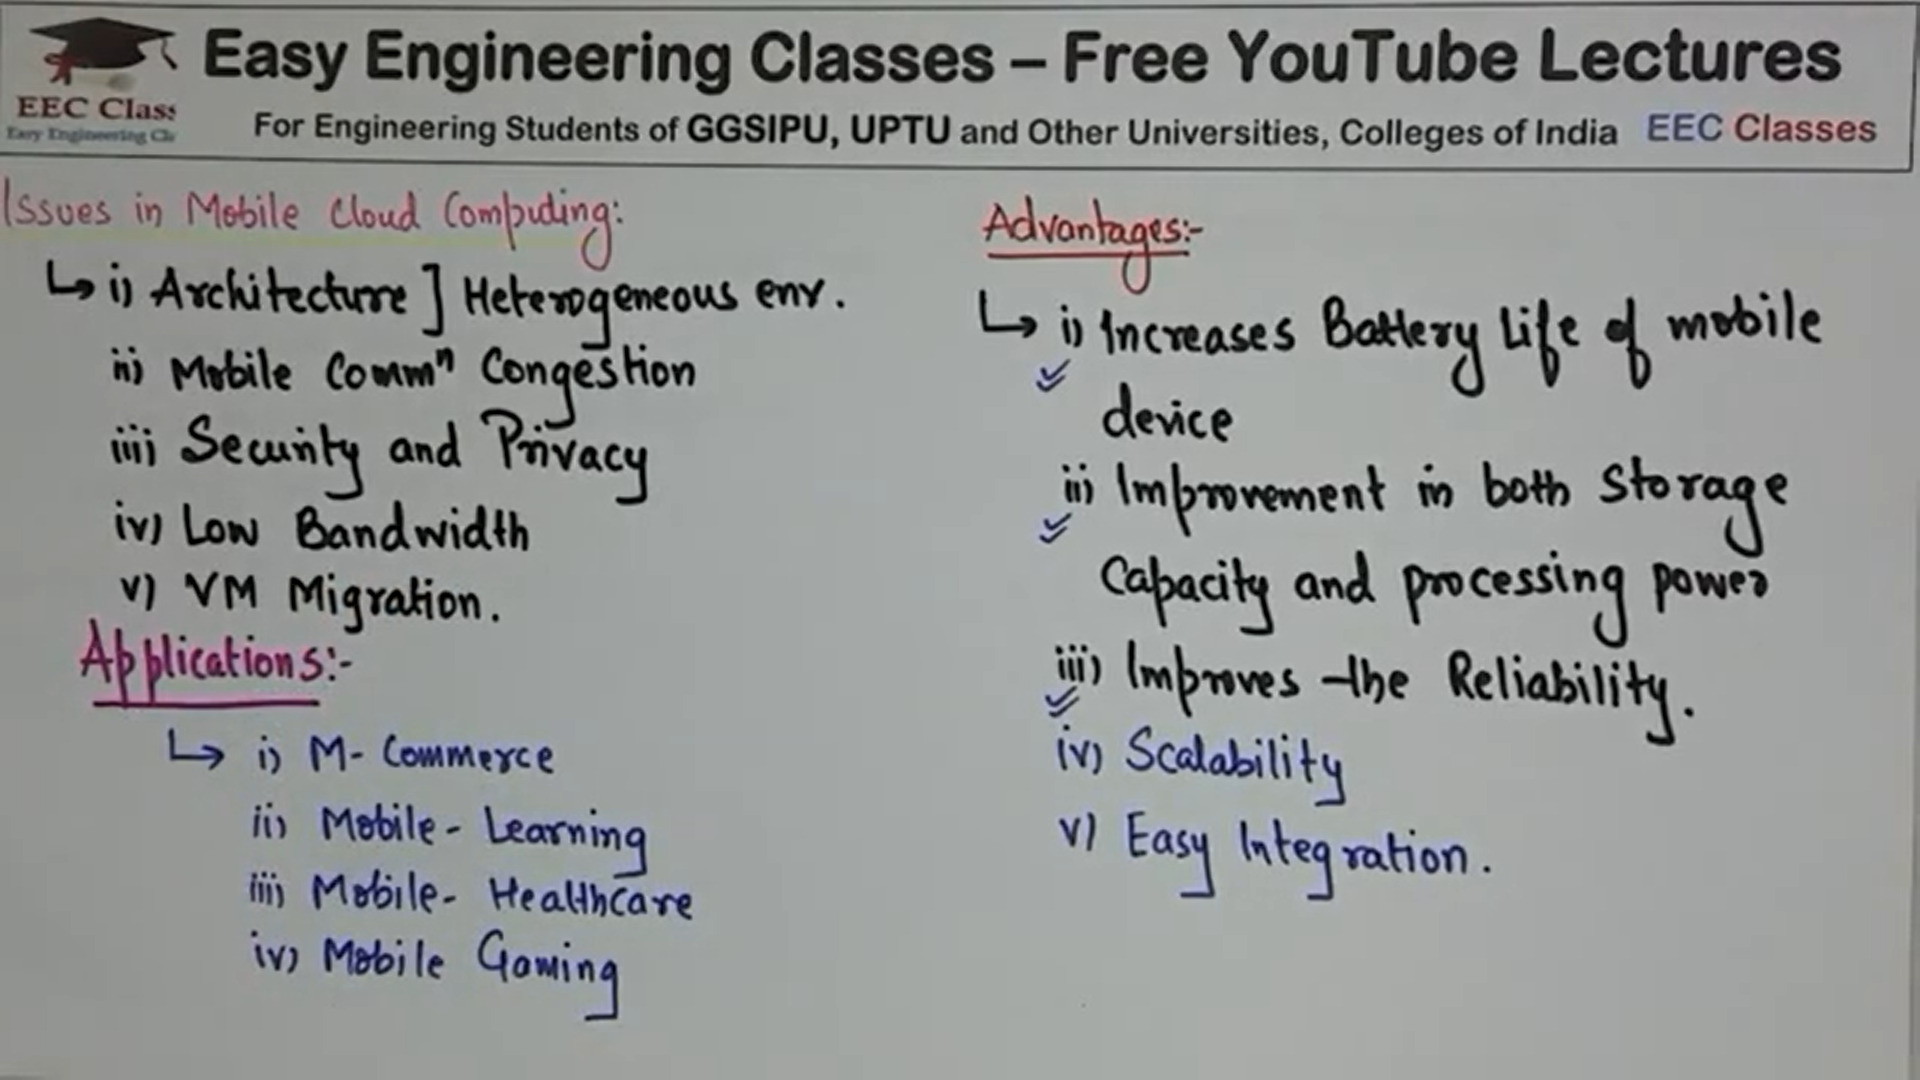 Easy Engineering Classes – Free YouTube Lectures
EEC Class
Easy Engineering Cla
For Engineering Students of GGSIPU, UPTU and Other Universities, Colleges of India EEC Classes
Issues in Mobile Cloud Computing:
↳ i) Architecture ] Heterogeneous env.
ii) Mobile Commⁿ Congestion
iii) Security and Privacy
iv) Low Bandwidth
v) VM Migration.
Applications:-
↳ i) M-Commerce
ii) Mobile-Learning
iii) Mobile-Healthcare
iv) Mobile Gaming
Advantages:-
↳ i) Increases Battery Life of mobile
device
ii) Improvement in both Storage
Capacity and processing power
iii) Improves the Reliability.
iv) Scalability
v) Easy Integration.